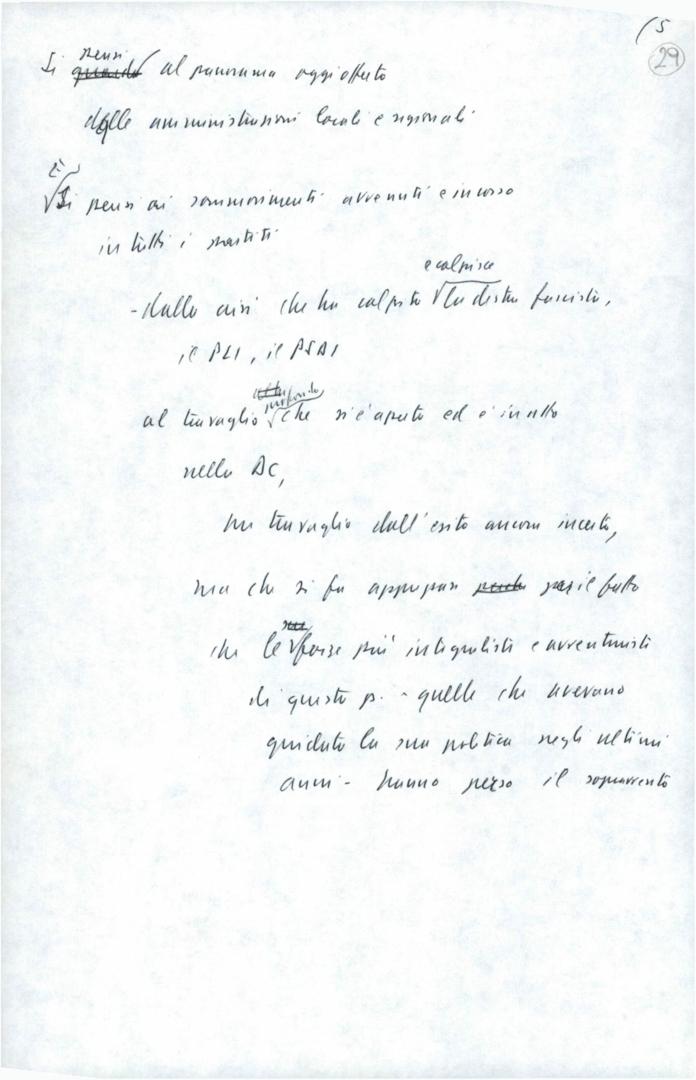 15
29
Si pensi al panorama oggi offerto
dalle amministrazioni locali e regionali
E
Si pensi ai sommovimenti avvenuti e in corso
in tutti i partiti
e colpisce
- dalla crisi che ha colpito la destra fascista,
il PLI, il PSDI
profondo
al travaglio che si è aperto ed è in atto
nella DC,
un travaglio dall'esito ancora incerto,
ma che si fa appunto per il fatto
che le forze più integraliste e avventuriste
di questo p. - quelle che avevano
guidato la sua politica negli ultimi
anni - hanno perso il sopravvento